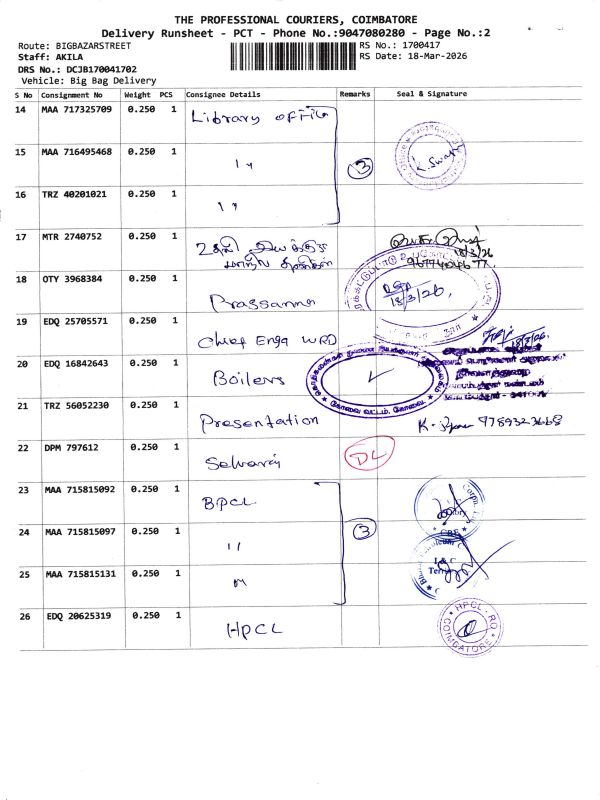 THE PROFESSIONAL COURIERS, COIMBATORE
Delivery Runsheet - PCT - Phone No.:9047080280 - Page No.:2
Route: BIGBAZARSTREET
RS No.: 1700417
Staff: AKILA
RS Date: 18-Mar-2026
DRS No.: DCJB170041702
Vehicle: Big Bag Delivery
S No Consignment No Weight PCS Consignee Details Remarks Seal & Signature
14 MAA 717325709 0.250 1 Library office
15 MAA 716495468 0.250 1 " 3
16 TRZ 40201021 0.250 1 "
17 MTR 2740752 0.250 1 உதவி
18/3/26
18 OTY 3968384 0.250 1 Prassanna
18/3/26,
19 EDQ 25705571 0.250 1 Chief Eng WRD
18/3/26,
20 EDQ 16842643 0.250 1 Boilers
கோவை வட்டம், கோவை.
21 TRZ 56052230 0.250 1 Presentation
22 DPM 797612 0.250 1 DL
23 MAA 715815092 0.250 1 BPCL
24 MAA 715815097 0.250 1 " 3
25 MAA 715815131 0.250 1 "
26 EDQ 20625319 0.250 1 HPCL
HPCL-RO
COIMBATORE